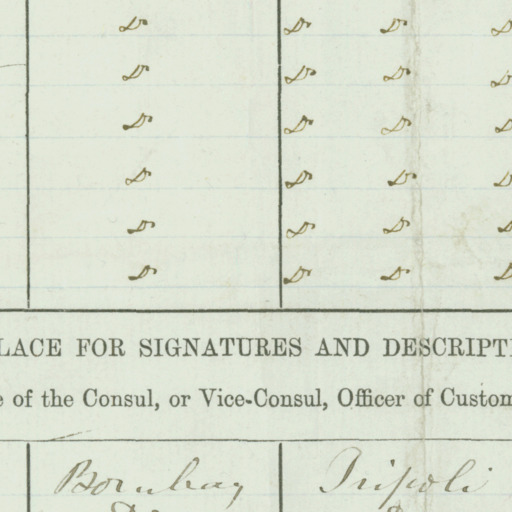 Do Do Do Do
Do Do Do Do
Do Do Do Do
Do Do Do Do
Do Do Do Do
Do Do Do Do
LACE FOR SIGNATURES AND DESCRIPTI
e of the Consul, or Vice-Consul, Officer of Custom
Bombay Tripoli